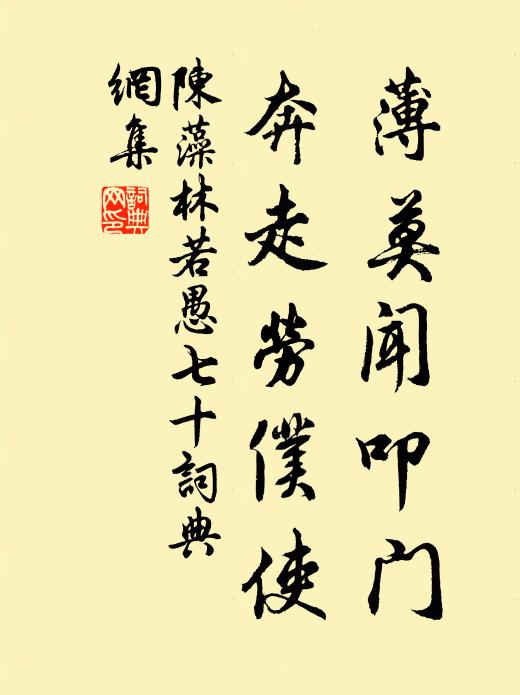 薄莫聞叩门
奔走勞僕使
陳藻林若愚七十詞典
網集
詞典
网印